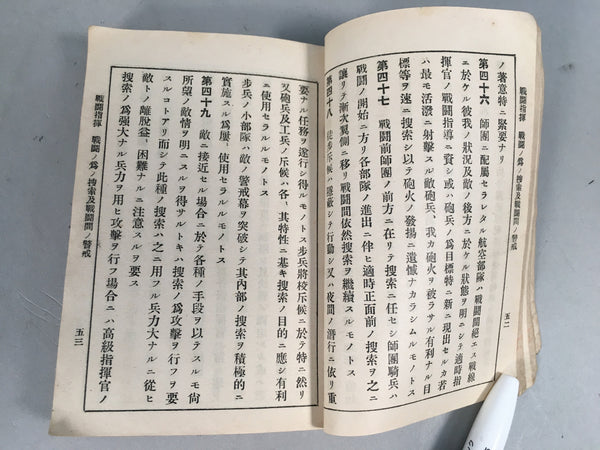 戰鬪指揮　戰鬪ノ爲ノ搜索及戰鬪間ノ警戒
五二
ノ著意特ニ緊要ナリ
第四十六　師團ニ配屬セラレタル航空部隊ハ戰鬪間絕エス戰線
ニ於ケル彼我ノ狀況及敵ノ後方ニ於ケル狀態ヲ明ニシテ適時指
揮官ノ戰鬪指導ニ資シ或ハ砲兵ノ爲目標特ニ新ニ現出セルカ若
ハ最モ活潑ニ射擊スル敵砲兵、我カ砲火ヲ被ラサル有利ナル目
標等ヲ速ニ搜索シ以テ砲火ノ發揚ニ遺憾ナカラシムルモノトス
第四十七　戰鬪前師團ノ前方ニ在リテ搜索ニ任セシ師團騎兵ハ
戰鬪ノ開始ニ方リ各部隊ノ進出ニ伴ヒ適時正面前ノ搜索ヲ之ニ
讓リテ漸次翼側ニ移リ戰鬪間依然搜索ヲ繼續スルモノトス
第四十八　徒步斥候ハ遮蔽シテ行動シ又ハ夜間ノ潛行ニ依リ重
要ナル任務ヲ遂行シ得ルモノトス步兵將校斥候ニ於テ特ニ然リ
又砲兵及工兵ノ斥候ハ各〻其特性ニ基キ搜索ノ目的ニ應シ有利
ニ使用セラルルモノトス
步兵ノ小部隊ハ敵ノ警戒幕ヲ突破シテ其內部ノ搜索ヲ積極的ニ
實施スル爲屢〻使用セラルルモノトス
第四十九　敵ニ接近セル場合ニ於テ各種ノ手段ヲ以テスルモ尙
所望ノ敵情ヲ明ニスルヲ得サルトキハ搜索ノ爲攻擊ヲ行フヲ要
スルコトアリ而シテ此種ノ搜索ハ之ニ用フル兵力大ナルニ從ヒ
敵トノ離脫益〻困難ナルニ注意スルヲ要ス
搜索ノ爲强大ナル兵力ヲ用ヒ攻擊ヲ行フ場合ニハ高級指揮官ノ
戰鬪指揮　戰鬪ノ爲ノ搜索及戰鬪間ノ警戒
五三